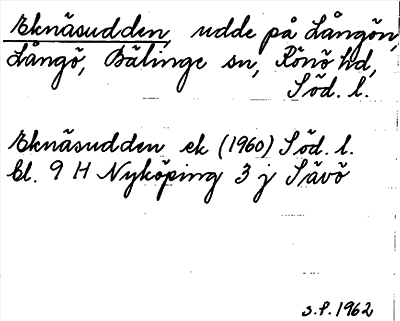 Eknäsudden, udde på Långön,
Långö, Bälinge sn, Rönö hd,
Söd. l.
Eknäsudden ek (1960) Söd. l.
bl. 9 H Nyköping 3 j Sävö
s.P. 1962